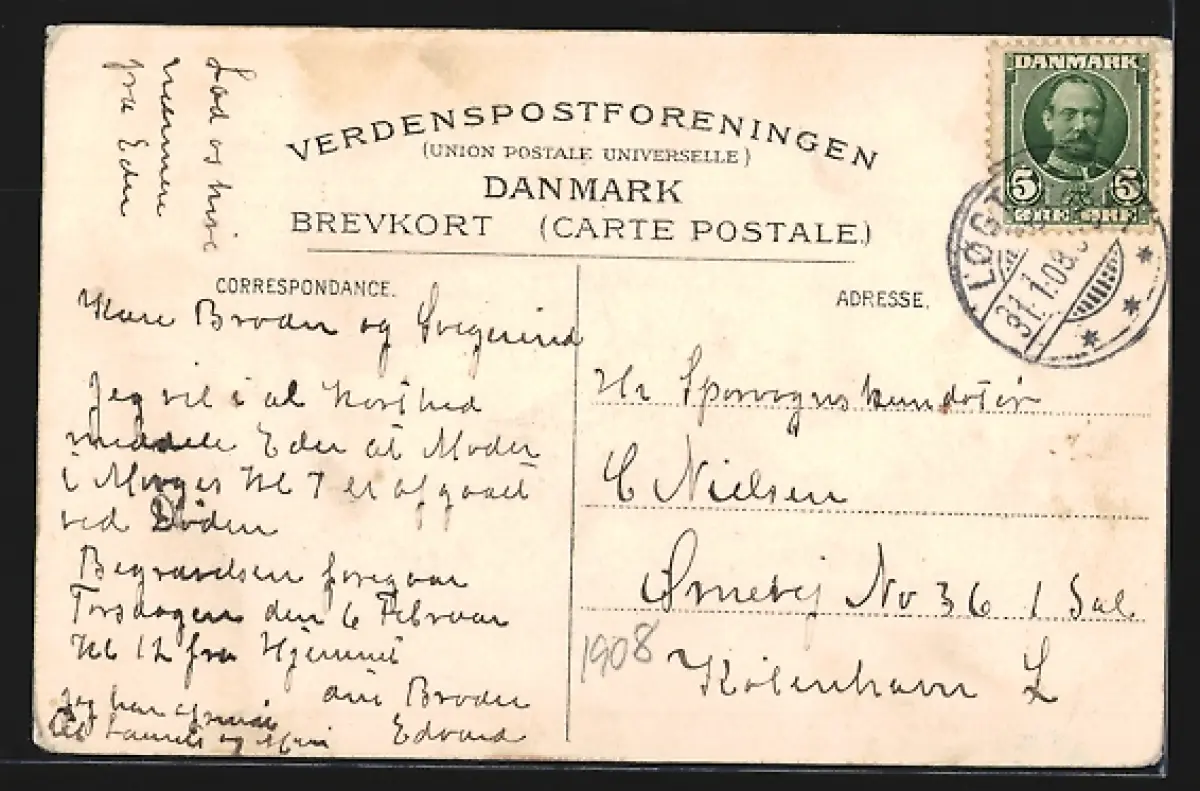 Lad os høre
nærmere
fra Eder
VERDENSPOSTFORENINGEN
(UNION POSTALE UNIVERSELLE)
DANMARK
BREVKORT (CARTE POSTALE.)
DANMARK
5 5
ØRE ØRE
LØGST
31.1.08
CORRESPONDANCE.
Kære Broder og Svegerinde
Jeg vil i al Korthed
meddele Eder at Moder
i Morges Kl 7 er afgaaet
ved Døden
Begravelsen foregaar
Torsdagen den 6 Februar
Kl 12 fra Hjemmet
din Broder
Edvard
Jeg har
og
ADRESSE.
Hr Sporvognskonduktør
C Nielsen
Ørnevej No 36 1 Sal
København L
1908